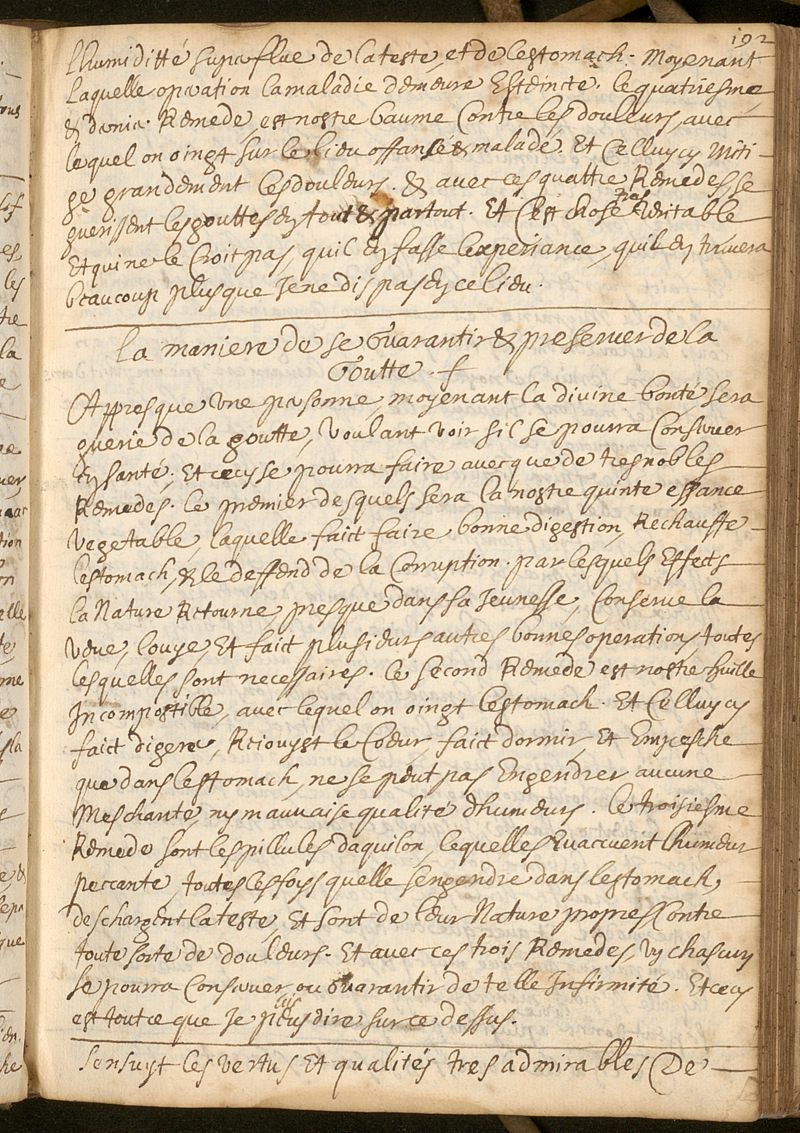 192
lhumiditté superflue de lateste, et de lestomach. Moyenant
Laquelle operation lamaladie demeure Esteincte. le quatriesme
& dernier Remede, est nostre baume Contre les douleurs, avec
lequel on oingt sur le lieu offansé & malade. Et Celluycy miti-
ge grandement les douleurs. & avec ces quattre Remedes se
guerissent les gouttes en tout & partout. Et C'est chose tres veritable
Et qui ne le Croit pas, quil en fasse lexperiance, quil en trouvera
beaucoup plus que Je ne dis pas en ce lieu.
La maniere de se Guarantir & preserver de la
Goutte.
Appres que Une personne, moyenant la divine bonté, sera
guerie de la goutte, Voulant voir sil se pourra Conserver
En santé; Et cecy se pourra faire avec que de tres nobles
Remedes. le premier desquels sera la nostre quinte essance
Vegetable, laquelle faict faire bonne digestion, Rechauffe
lestomach, & le deffend de la Corruption. par lesquels Effects
la Nature Retourne, presque dans sa Jeunesse, Conserve la
veue, louye, Et faict plusieurs autres bonnes operations, toutes
lesquelles sont necessaires. le second Remede est nostre huille
Incompostible, avec lequel on oingt lestomach. Et Celluycy
faict digerer, Resiouyst le Coeur, faict dormir, Et Empesche
que dans lestomach, ne se peut pas Engendrer aucune
Meschante, ny mauvaise qualité dhumeurs. le troisiesme
Remede sont les pillules daquilon, lequelles Evaccuent lhumeur
peccante, toutes les foys quelle sengendre dans lestomach,
deschargent la teste, Et sont de leur Nature propres Contre
toute sorte de douleurs. Et avec ces trois Remedes, un chascun
se pourra Conserver, ou Guarantir de telle Infirmité. Et cecy
est tout ce que Je puis dire sur ce dessus.
Sensuyt les vertus Et qualités tres admirables De